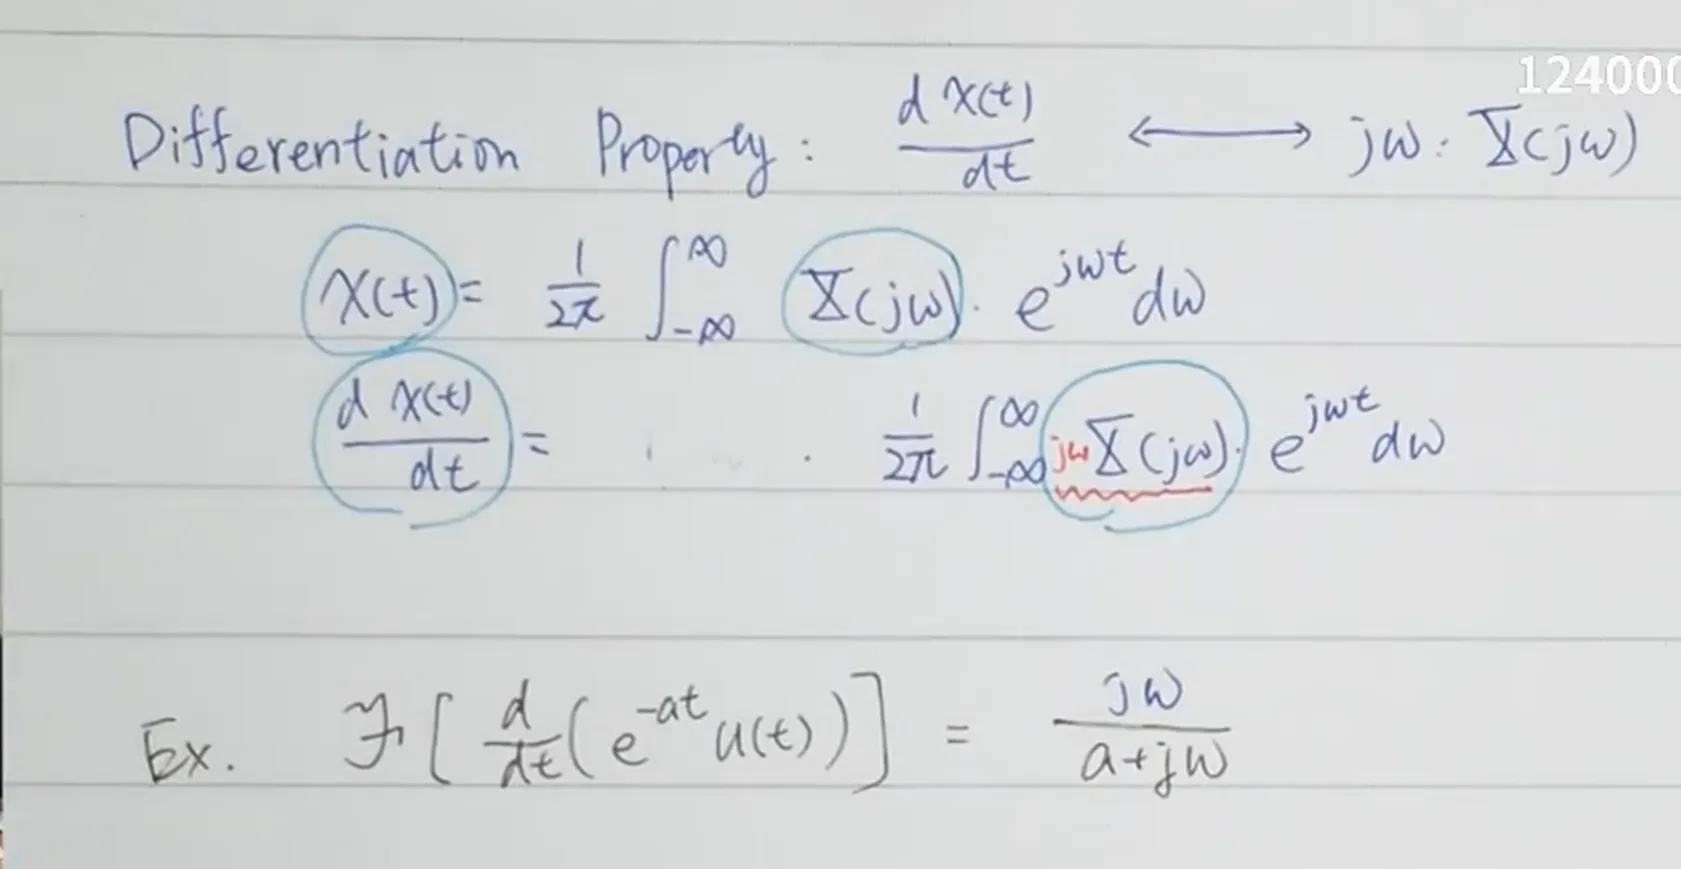 124000
Differentiation Property: d x(t) / dt ⟷ jω · X(jω)
x(t) = 1/2π ∫_{-∞}^{∞} X(jω) · e^{jωt} dω
d x(t) / dt = 1/2π ∫_{-∞}^{∞} jω X(jω) · e^{jωt} dω
Ex. ℱ[ d/dt ( e^{-at} u(t) ) ] = jω / a+jω